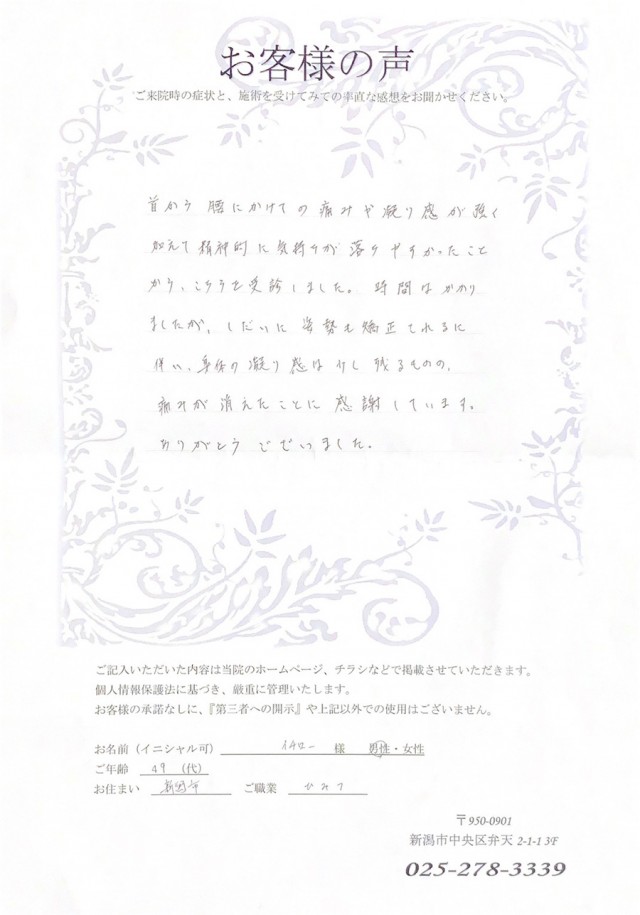 お客様の声
ご来院時の症状と、施術を受けてみての率直な感想をお聞かせください。
首から 腰にかけての 痛みや凝り感が強く
加えて精神的に気持ちが 落ちやすかったこと
から、こちらを受診しました。 時間はかかり
ましたが、しだいに 姿勢も矯正されるに
伴い、身体の凝り感は少し残るものの、
痛みが消えたことに 感謝しています。
ありがとう ございました。
ご記入いただいた内容は当院のホームページ、チラシなどで掲載させていただきます。
個人情報保護法に基づき、厳重に管理いたします。
お客様の承諾なしに、『第三者への開示』や上記以外での使用はございません。
お名前（イニシャル可） イチロー 様 男性・女性
ご年齢 49 （代）
お住まい 新潟市 ご職業 ひみつ
〒950-0901
新潟市中央区弁天 2-1-1 3F
025-278-3339